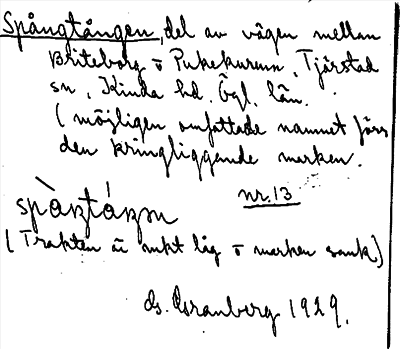 Spångtången, del av vägen mellan
Briteborg o Pukekurum, Tjärstad
sn, Kinda hd. Ögl. län.
(möjligen omfattade namnet förs
den kringliggande marken.
nr.13
(Trakten är mkt låg o marken sank)
Granberg 1929.